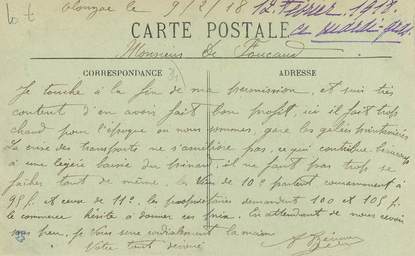 Olonzac le 9/2/18 12 Février 1918.
ce mardi gras
CARTE POSTALE
Monsieur De Foucaud
CORRESPONDANCE ADRESSE
Je touche à la fin de ma permission, et suis très
content d'en avoir fait bon profit, ici il fait trop
chaud pour l'époque où nous sommes, gare les gelées printanières
La crise des transports ne s'améliore pas, ce qui contribue beaucoup
à une légère baisse du pinard, il ne fait pas trop se
fâcher tout de même. les Vins de 10° partent couramment à
95 f. et ceux de 11°. les propriétaires demandent 100 et 105 f.
le commerce hésite à donner ces prix. En attendant de nous revoir
sous peu, je vous serre cordialement la main
Votre tout dévoué